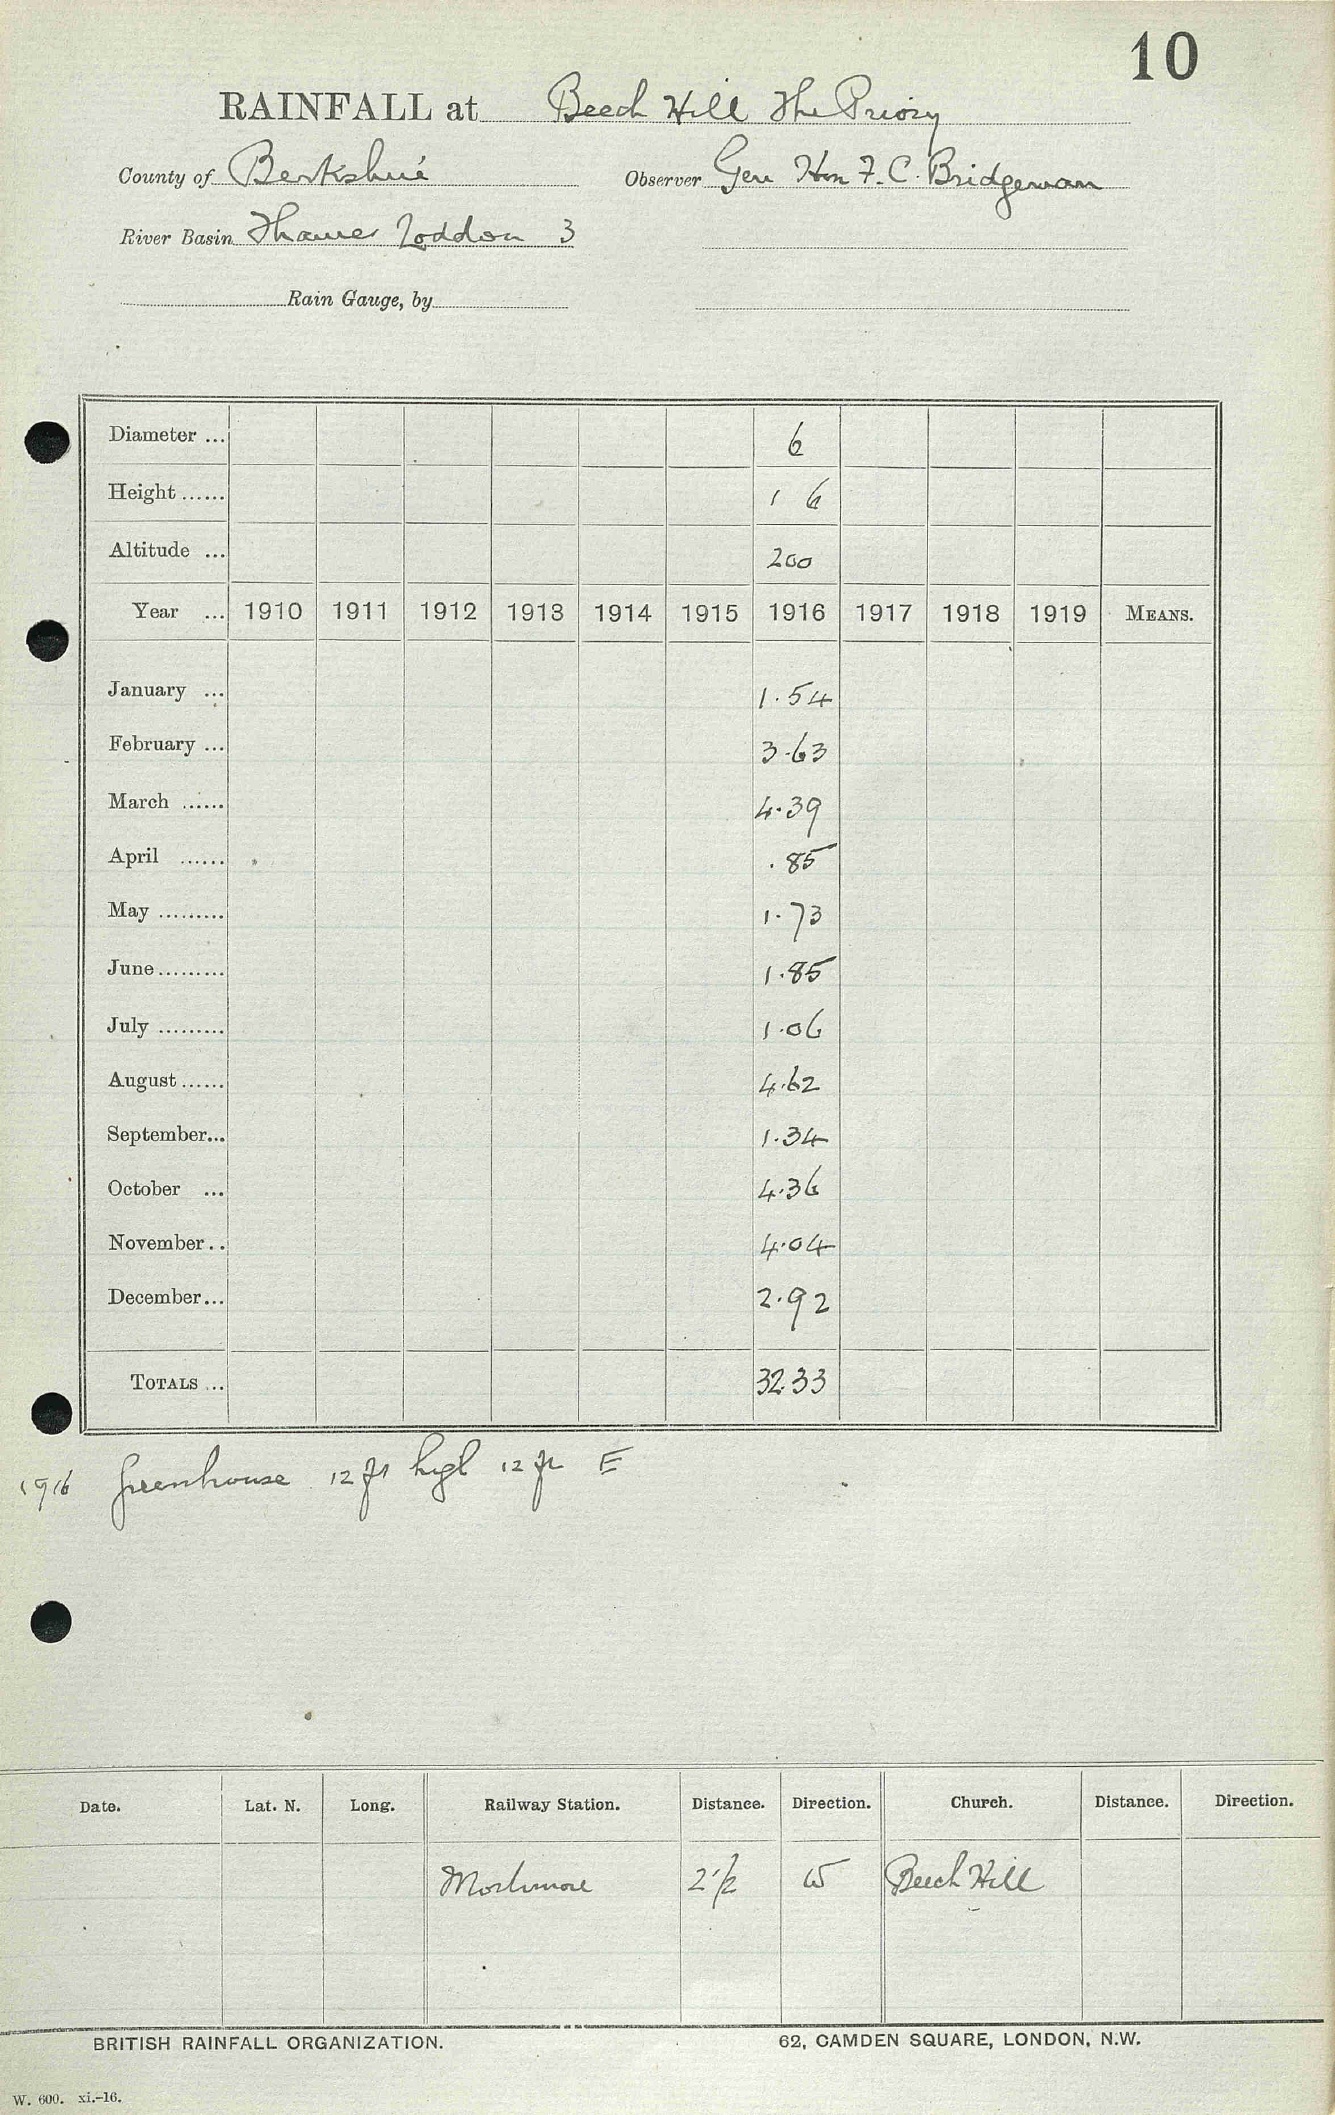 10
RAINFALL at Beech Hill The Priory
County of Berkshire Observer Gen Hon F. C. Bridgeman
River Basin Thames Loddon 3
Rain Gauge, by
Diameter ... 6
Height ...... 1 6
Altitude ... 200
Year ... 1910 1911 1912 1913 1914 1915 1916 1917 1918 1919 MEANS.
January ... 1.54
February ... 3.63
March ...... 4.39
April ...... .85
May ......... 1.73
June ......... 1.85
July ......... 1.06
August ...... 4.62
September... 1.34
October ... 4.36
November.. 4.04
December... 2.92
TOTALS ... 32.33
1916 Greenhouse 12 ft high 12 ft E
Date. Lat. N. Long. Railway Station. Distance. Direction. Church. Distance. Direction.
Mortimore 2 1/2 W Beech Hill
BRITISH RAINFALL ORGANIZATION. 62, CAMDEN SQUARE, LONDON, N.W.
W. 600. xi.-16.